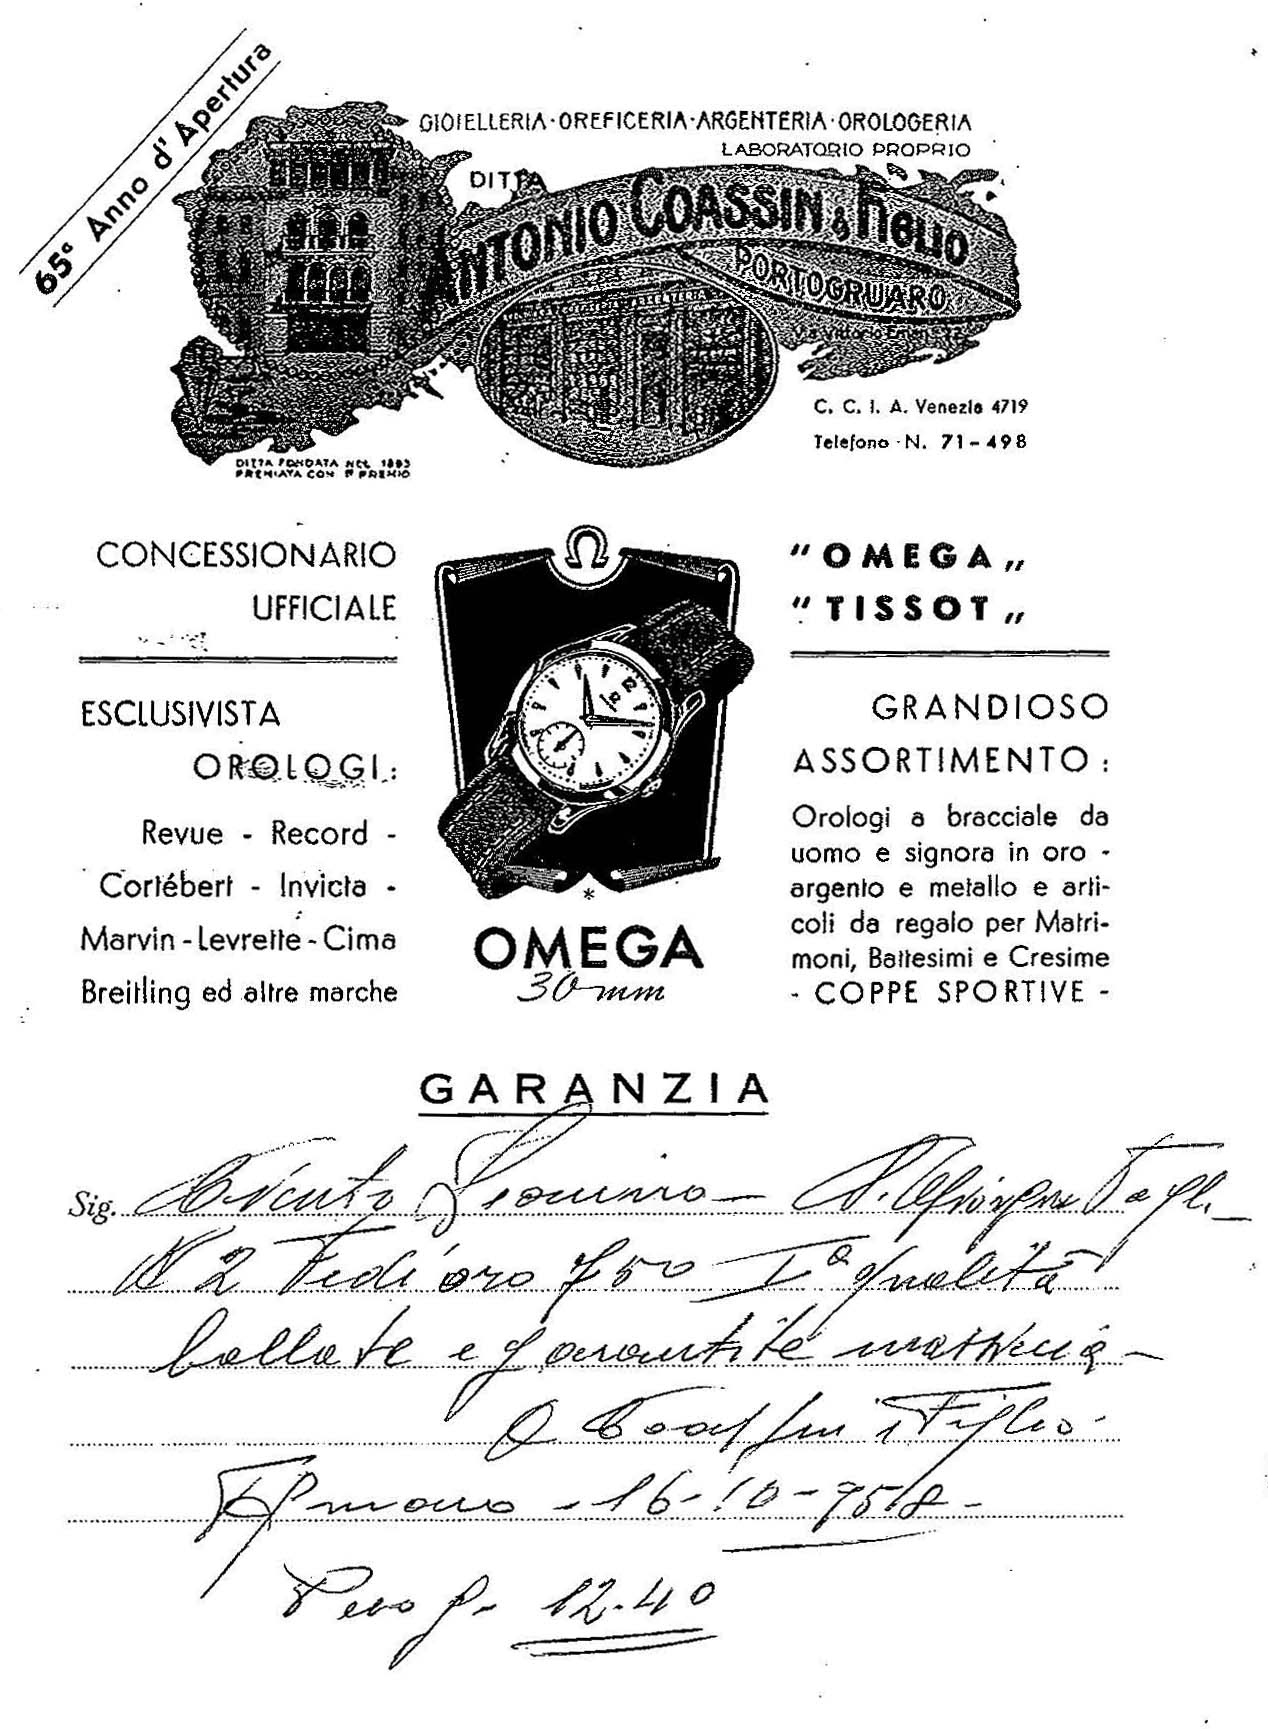 65° Anno d'Apertura
GIOIELLERIA·OREFICERIA·ARGENTERIA·OROLOGERIA
LABORATORIO PROPRIO
DITTA
ANTONIO COASSIN & FIGLIO
PORTOGRUARO
C. C. I. A. Venezia 4719
Telefono · N. 71-498
DITTA FONDATA NEL 1893
PREMIATA CON 1° PREMIO
CONCESSIONARIO
UFFICIALE
"OMEGA„
"TISSOT„
ESCLUSIVISTA
OROLOGI:
Revue - Record -
Cortébert - Invicta -
Marvin - Levrette - Cima
Breitling ed altre marche
12
OMEGA
30 mm
GRANDIOSO
ASSORTIMENTO:
Orologi a bracciale da
uomo e signora in oro -
argento e metallo e arti-
coli da regalo per Matri-
moni, Battesimi e Cresime
- COPPE SPORTIVE -
GARANZIA
Sig.
N 2 Fedi oro 750 Iª qualità
bollate e garantite
A Coassin e Figlio
16-10-958-
Peso g- 12.40